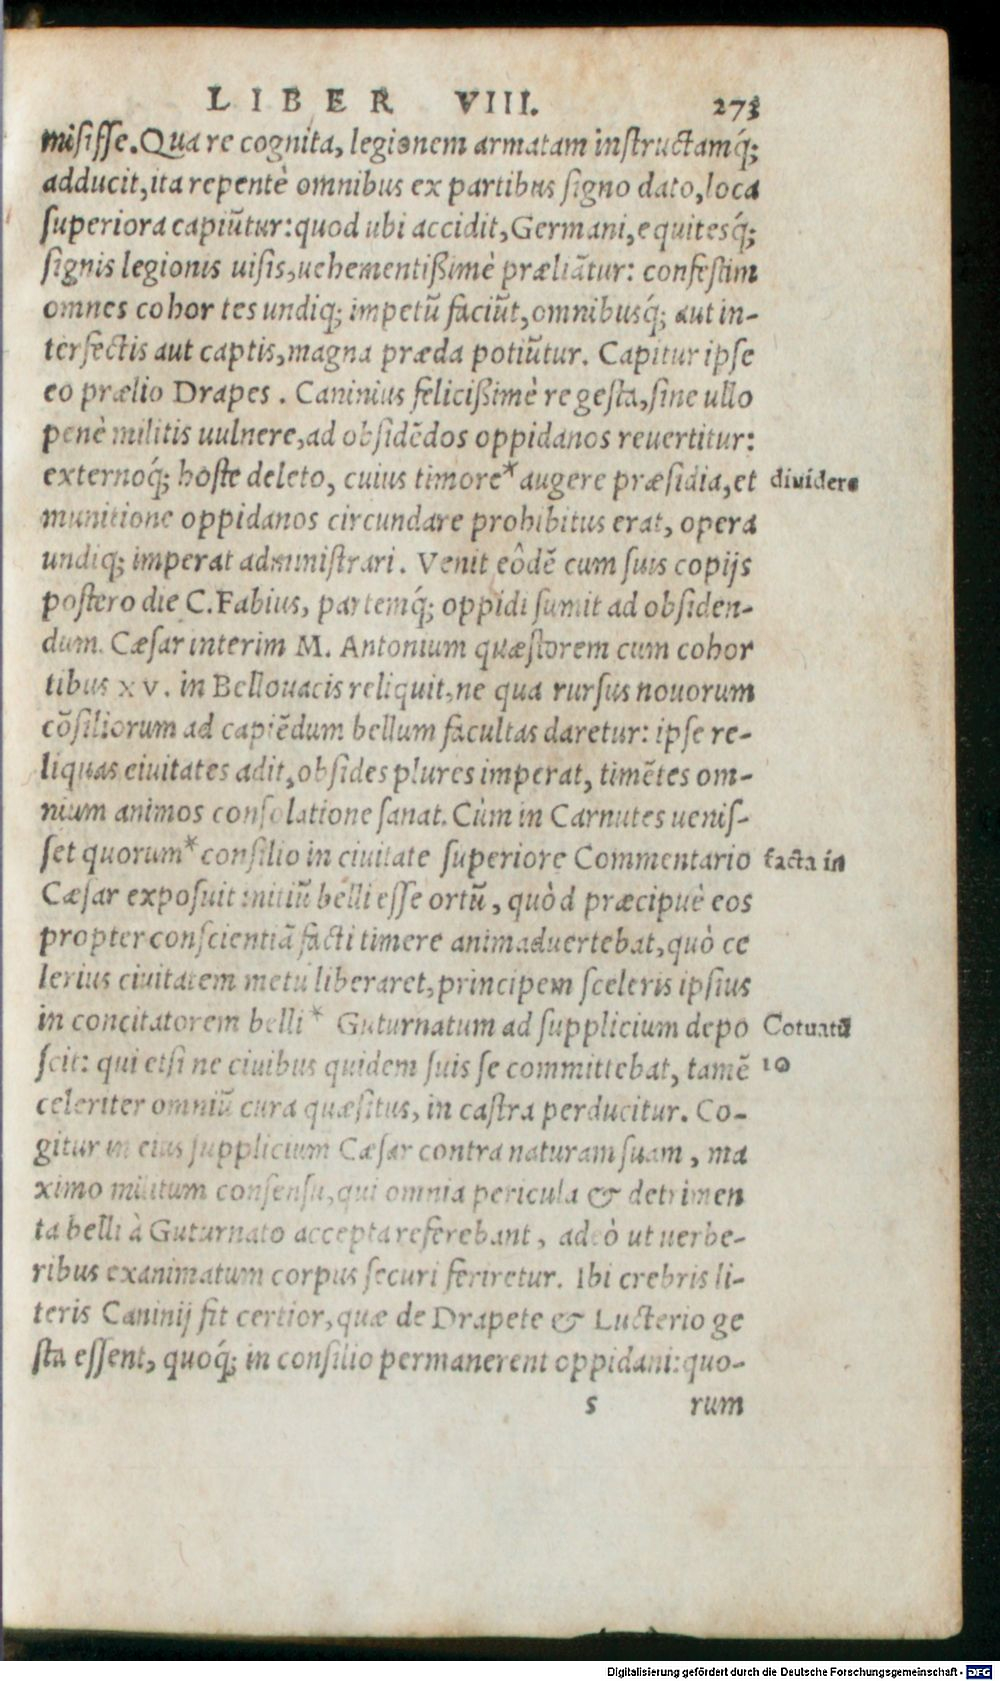 LIBER VIII. 273
misisse. Qua re cognita, legionem armatam instructamq́;
adducit, ita repentè omnibus ex partibus signo dato, loca
superiora capiũtur: quod ubi accidit, Germani, equitesq́;
signis legionis uisis, uehementißimè præliãtur: confestim
omnes cohor tes undiq; impetũ faciũt, omnibusq́; aut in-
terfectis aut captis, magna præda potiũtur. Capitur ipse
eo prælio Drapes. Caninius felicißimè re gesta, sine ullo
penè militis uulnere, ad obsidẽdos oppidanos reuertitur:
externoq́; hoste deleto, cuius timore* augere præsidia, et dividere
munitione oppidanos circundare prohibitus erat, opera
undiq; imperat administrari. Venit eôdẽ cum suis copijs
postero die C. Fabius, partemq́; oppidi sumit ad obsiden-
dum. Cæsar interim M. Antonium quæstorem cum cohor
tibus xv. in Bellouacis reliquit, ne qua rursus nouorum
cõsiliorum ad capiẽdum bellum facultas daretur: ipse re-
liquas ciuitates adit, obsides plures imperat, timẽtes om-
nium animos consolatione sanat. Cùm in Carnutes uenis-
set quorum* consilio in ciuitate superiore Commentario facta in
Cæsar exposuit initiũ belli esse ortũ, quòd præcipuè eos
propter conscientiã facti timere animaduertebat, quò ce
lerius ciuitatem metu liberaret, principem sceleris ipsius
in concitatorem belli* Guturnatum ad supplicium depo Cotuatũ
scit: qui etsi ne ciuibus quidem suis se committebat, tamẽ 10
celeriter omniũ cura quæsitus, in castra perducitur. Co-
gitur in eius supplicium Cæsar contra naturam suam, ma
ximo militum consensu, qui omnia pericula & detrimen
ta belli à Guturnato accepta referebant, adeò ut uerbe-
ribus exanimatum corpus securi feriretur. Ibi crebris li-
teris Caninij fit certior, quæ de Drapete & Lucterio ge
sta essent, quoq́; in consilio permanerent oppidani: quo-
s rum
Digitalisierung gefördert durch die Deutsche Forschungsgemeinschaft - DFG